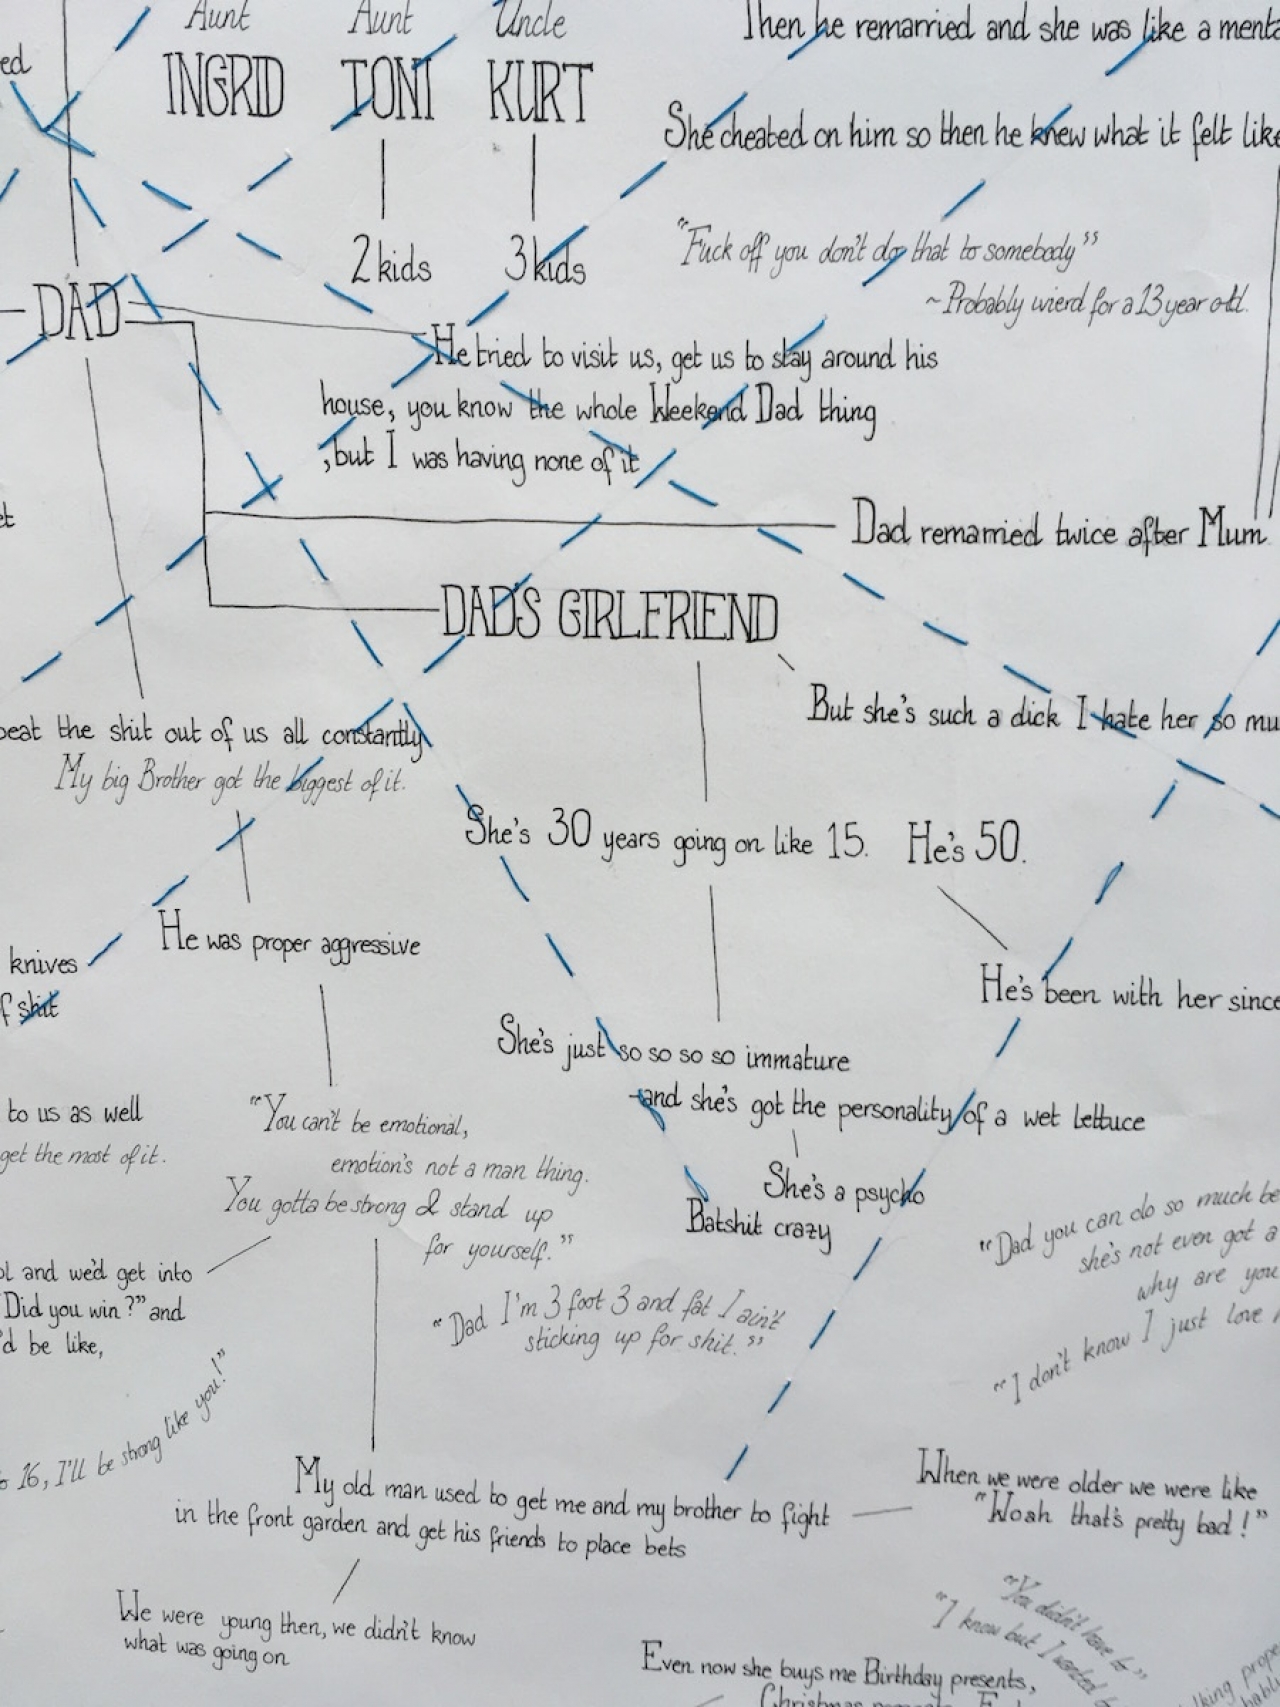 Aunt
INGRID
Aunt
TONI
Uncle
KURT
2 kids
3 kids
ed
Then he remarried and she was like a menta
She cheated on him so then he knew what it felt like
"Fuck off you don't do that to somebody"
~Probably wierd for a 13 year old.
DAD
He tried to visit us, get us to stay around his
house, you know the whole Weekend Dad thing
,but I was having none of it
Dad remarried twice after Mum
DAD'S GIRLFRIEND
But she's such a dick I hate her so mu
beat the shit out of us all constantly
My big Brother got the biggest of it.
She's 30 years going on like 15. He's 50.
He was proper aggressive
knives
f shit
He's been with her since
She's just so so so so immature
and she's got the personality of a wet lettuce
She's a psycho
Batshit crazy
to us as well
get the most of it.
"You can't be emotional,
emotion's not a man thing.
You gotta be strong & stand up
for yourself."
"Dad I'm 3 foot 3 and fat I ain't
sticking up for shit."
ol and we'd get into
Did you win?" and
'd be like,
16, I'll be strong like you!"
"Dad you can do so much be
she's not even got a
why are you
"I don't know I just love
My old man used to get me and my brother to fight
in the front garden and get his friends to place bets
When we were older we were like
"Woah that's pretty bad!"
We were young then, we didn't know
what was going on
"You didn't have to"
"I know but I wanted t
Even now she buys me Birthday presents,
Christmas
thing prope